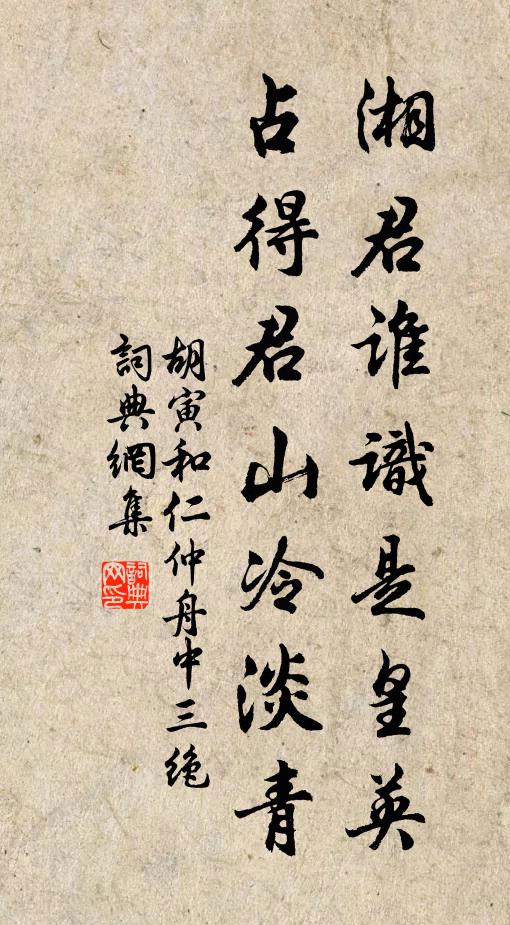 湘君誰識是皇英
占得君山冷淡青
胡寅和仁仲舟中三絶
詞典網集
詞典網印